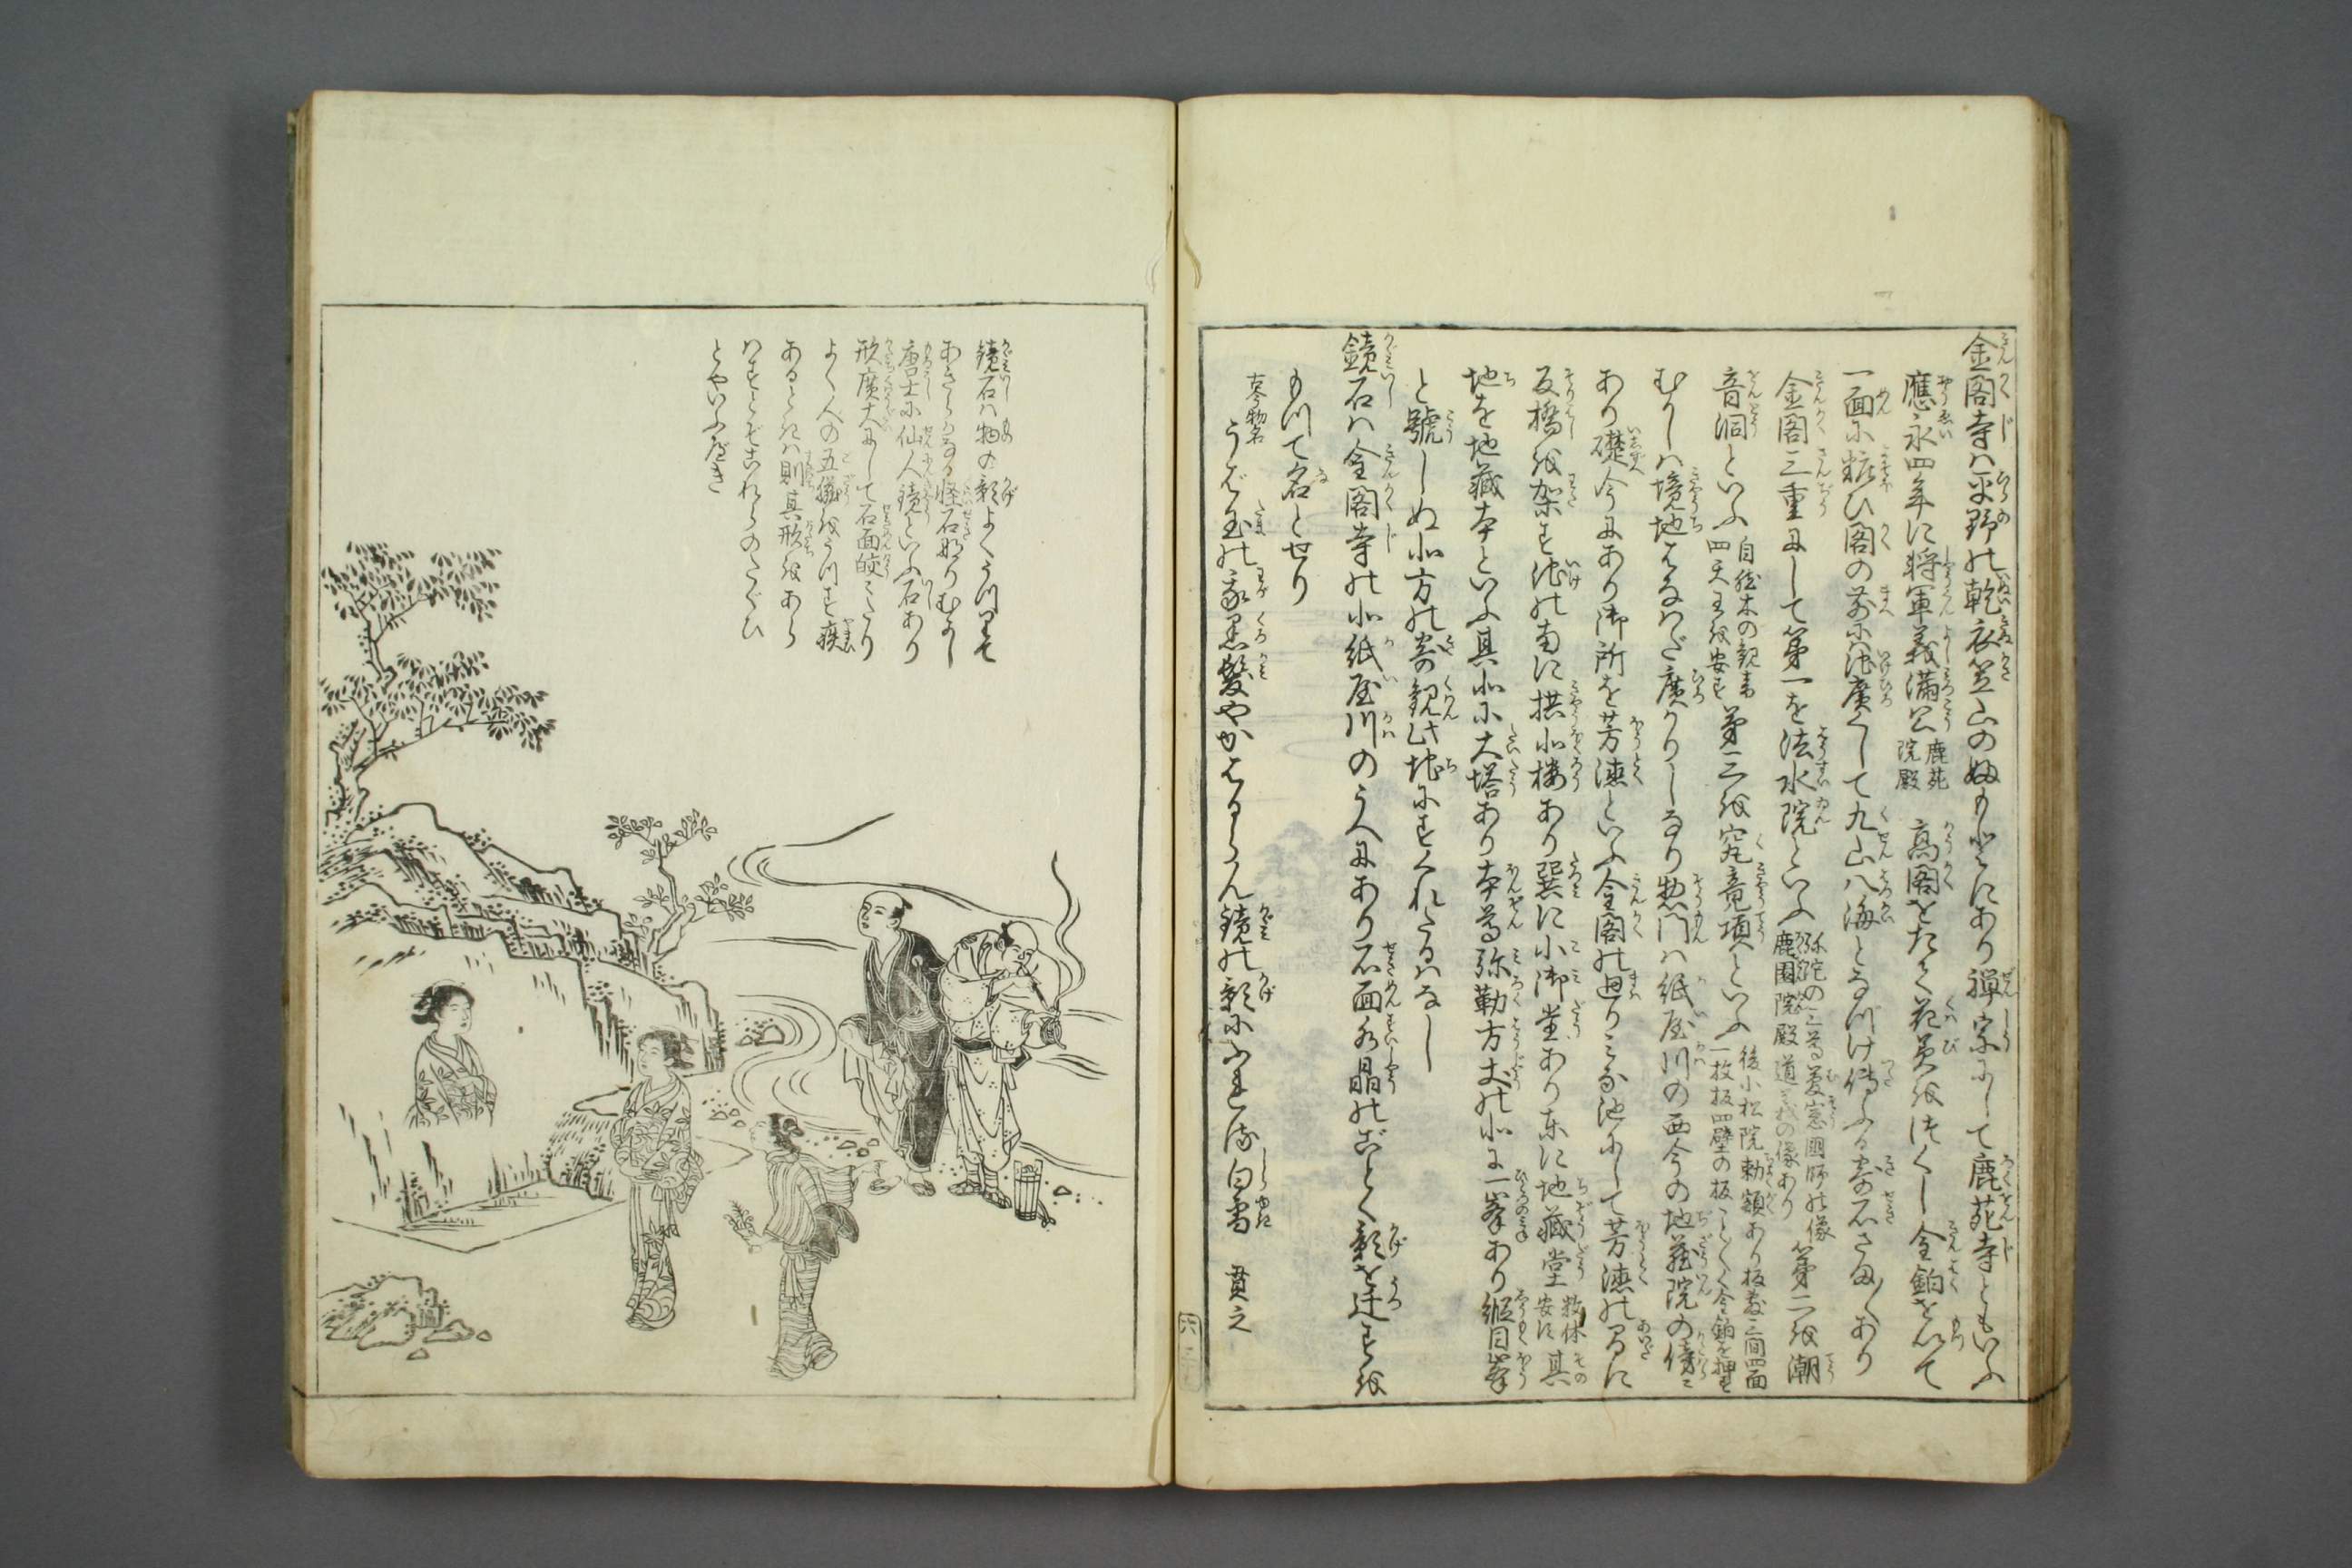 金閣寺ハ平野の乾衣笠山の麓もとにあり禅宗にして鹿苑寺ともいふ
應永四年に将軍義満公鹿苑院殿高閣をたて花美をつくし金鉑を以て
一面に粧ひ閣の前に池廣くして九山八海となづけ傳ふる奇石さま〴〵あり
金閣三重にして第一を法水院といふ弥陀の三尊夢窓國師の像鹿園院殿道義の像あり第二を潮
音洞といふ自然木の観音四天王を安ず第三を究竟頂といふ後小松院勅額あり板敷三間四面一枚板四壁の板こと〴〵く金鉑を押す
むかしハ境地はなはだ廣かりしなり惣門ハ紙屋川の西今の地蔵院の傍ニ
あり礎今にあり御所を芳徳といふ金閣の廻りみな池にして芳徳の間に
反橋を架す池の南に拱北楼あり巽に小御堂あり東に地蔵堂安ず其
地を地蔵本といふ其北に大塔あり本尊弥勒方丈の北に一峯あり縦目峯
と號しぬ北方の奇観此地にすぐれたるハなし
鏡石ハ金閣寺の北紙屋川のうへにあり石面水晶のごとく影を迁すを
もつて名とせり
古今物名
うば玉の我黒髪やかはるらん鏡の影にふれる白雪　貫之
鏡石ハ物の影よくうつりて
あきらかなる怪石なりむかし
唐土に仙人鏡といふ石あり
形廣大にして石面皎々たり
よく人の五臓をうつす疾
あるときハ則其形をあら
ハすとぞこれらのたぐひ
とやいふべき